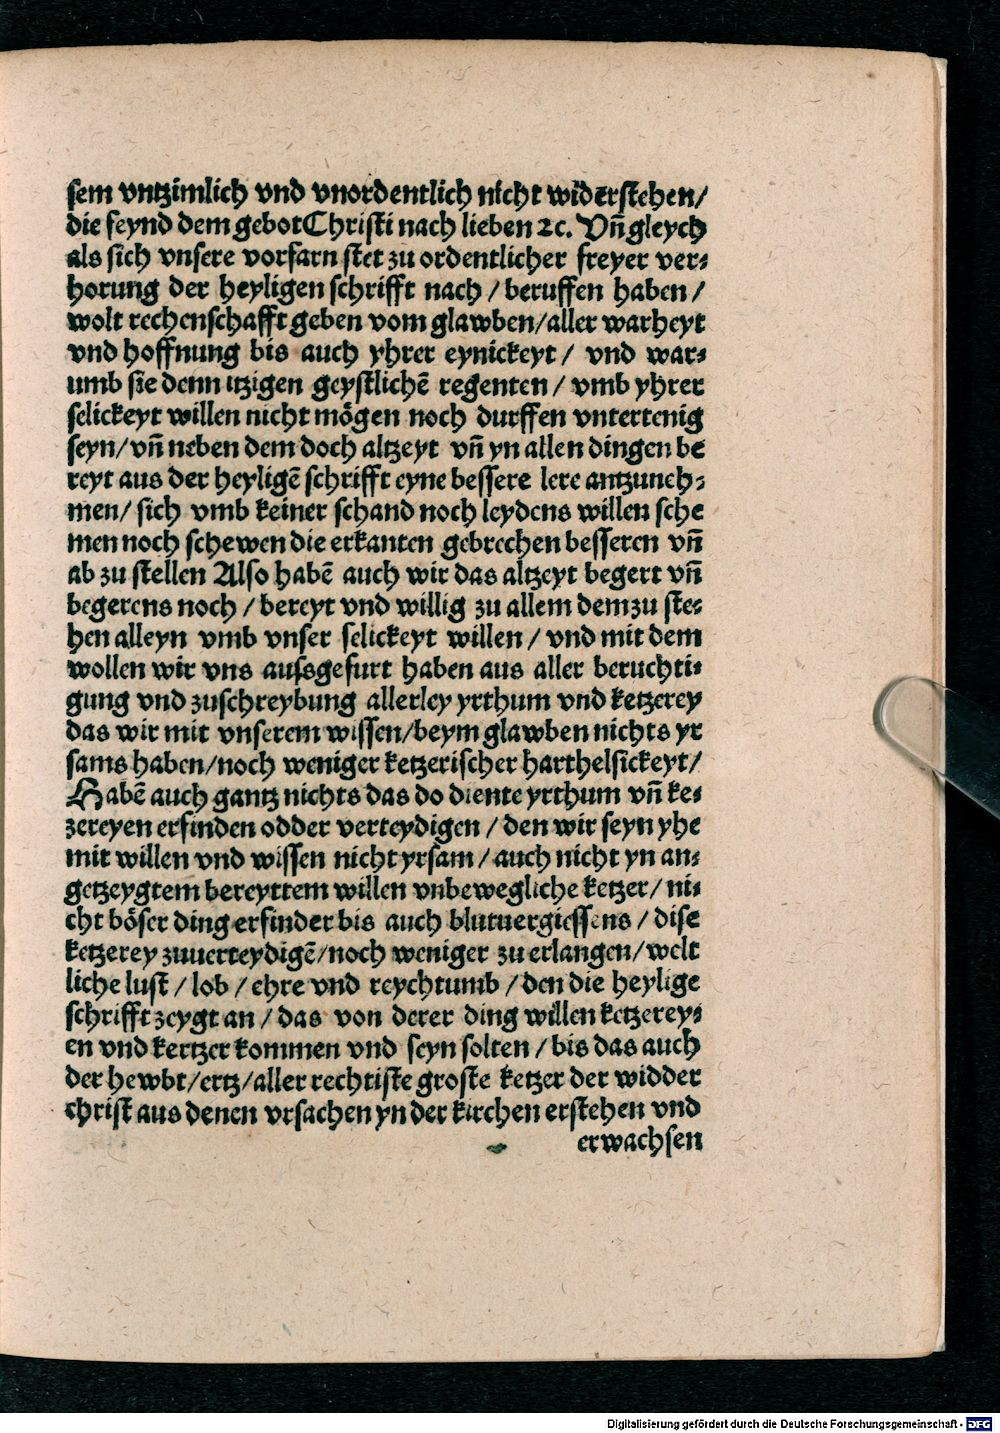 sem vntzimlich vnd vnordentlich nicht widerstehen/
die feynd dem gebot Christi nach lieben ꝛc. Vn̄ gleych
als sich vnsere vorfarn stet zu ordentlicher freyer ver⸗
horung der heyligen schrifft nach / beruffen haben /
wolt rechenschafft geben vom glawben/aller warheyt
vnd hoffnung bis auch yhrer eynickeyt / vnd war⸗
umb sie denn itzigen geystlichē regenten / vmb yhrer
selickeyt willen nicht mögen noch durffen vntertenig
seyn/vn̄ neben dem doch altzeyt vn̄ yn allen dingen be
reyt aus der heyligē schrifft eyne bessere lere antzuneh⸗
men/ sich vmb keiner schand noch leydens willen sche
men noch schewen die erkanten gebrechen besseren vn̄
ab zu stellen Also habē auch wir das altzeyt begert vn̄
begerens noch / bereyt vnd willig zu allem dem zu ste⸗
hen alleyn vmb vnser selickeyt willen / vnd mit dem
wollen wir vns aussgefurt haben aus aller beruchti⸗
gung vnd zuschreybung allerley yrthum vnd ketzerey
das wir mit vnserem wissen/beym glawben nichts yr
sams haben/noch weniger ketzerischer harthelsickeyt/
Habē auch gantz nichts das do diente yrthum vn̄ ke⸗
zereyen erfinden odder verteydigen / den wir seyn yhe
mit willen vnd wissen nicht yrsam / auch nicht yn an⸗
getzeygtem bereyttem willen vnbewegliche ketzer/ ni⸗
cht böser ding erfinder bis auch blutuergiessens / dise
ketzerey zuuerteydigē/noch weniger zu erlangen/welt
liche lust / lob / ehre vnd reychtumb / den die heylige
schrifft zeygt an / das von derer ding willen ketzerey⸗
en vnd kertzer kommen vnd seyn solten / bis das auch
der hewbt/ertz/aller rechtiste groste ketzer der widder
christ aus denen vrsachen yn der kirchen erstehen vnd
erwachsen
Digitalisierung gefördert durch die Deutsche Forschungsgemeinschaft - DFG